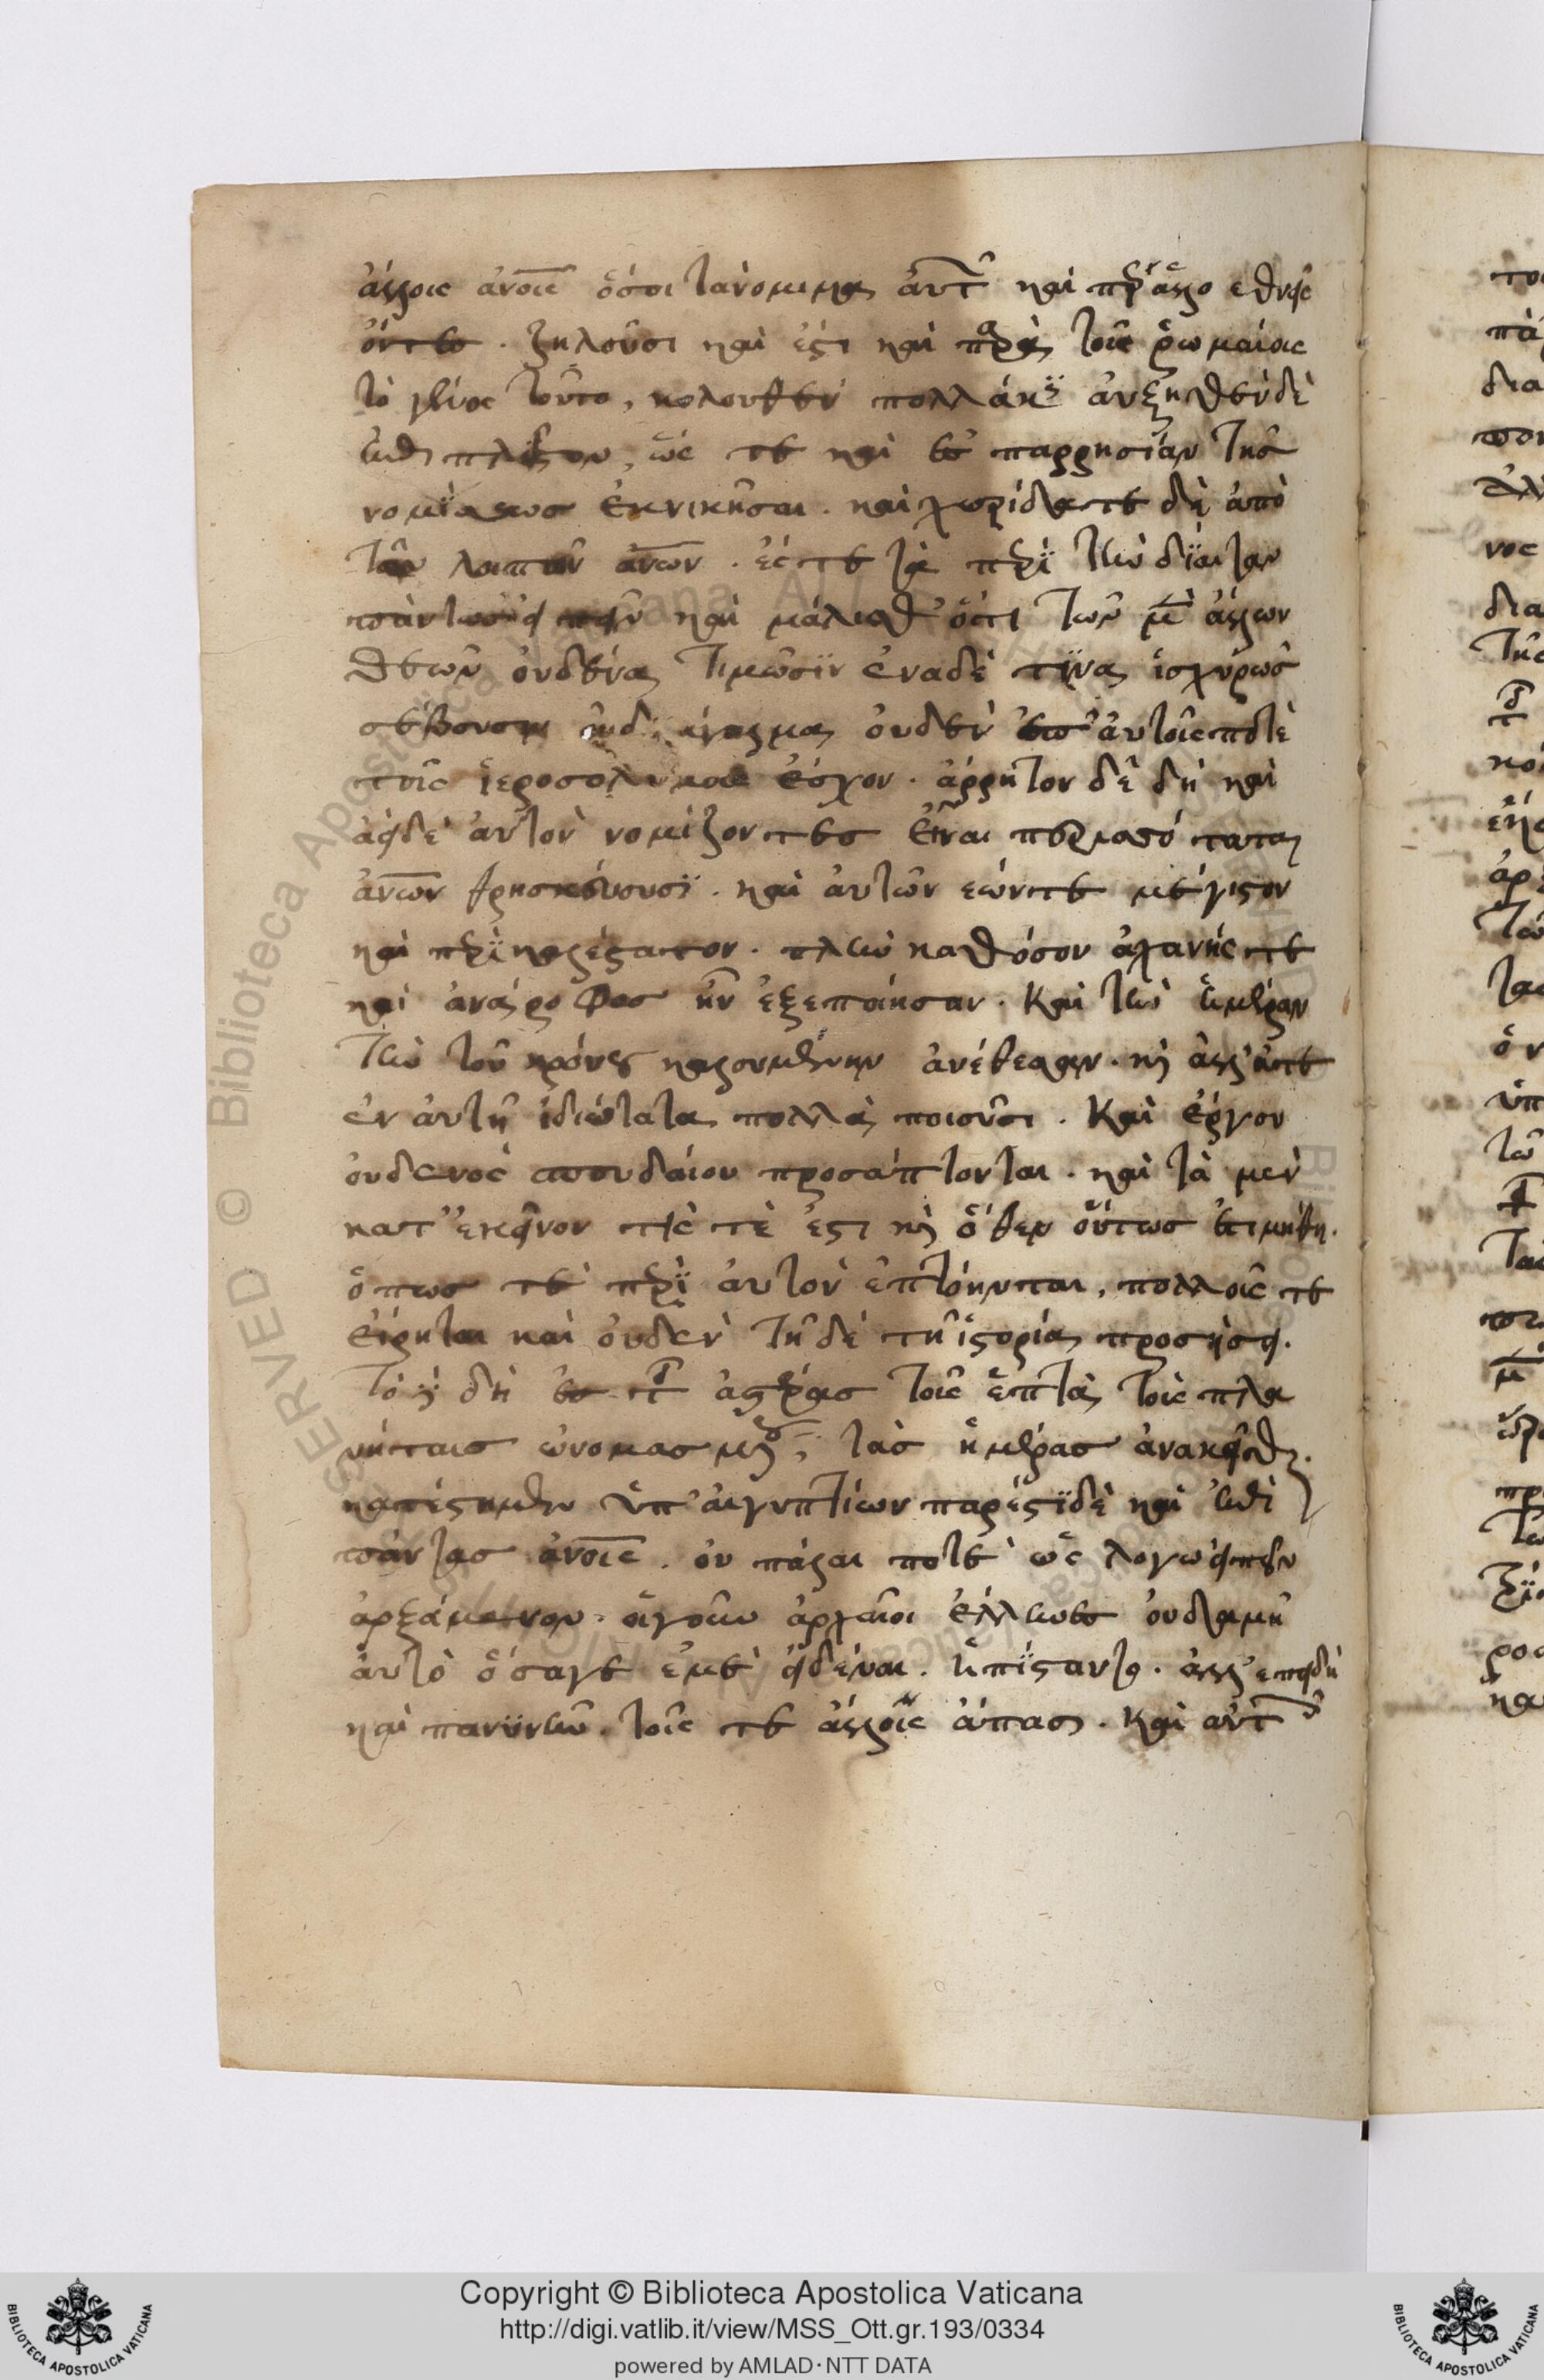 ἄλλοις ἀνοις ὅσοι τὰ νόμιμα ἀυτ καὶ πρ ἄλλο εθνεῖς
όντες . ζηλοῦσι καὶ ἔστι καὶ παρὰ τοῖς ῥωμαίοις
τὸ γένος τοῦτο, κολουθὲν πολλάκις ἀυξηθὲν δὲ
ἐπι πλεῖστον, ὡς τε καὶ ἐς παρρησίαν τῆς
νομίσεως ἐκνικῆσαι . καὶ χωρίδαται δὴ ἀπὸ
τῶν λοιπῶν ἀνων . ἔς τε τὰ περὶ τὴν δίαιταν
πάντως εἰπεῖν καὶ μάλισθ' ὅτι τῶν μὲν ἄλλων
θεῶν ὀυδένα τιμῶσϊν ἕνα δὲ τϊνα ἰσχυρῶς
σέβουσιν ὀυδ' ἄγαλμα ὀυδὲν ἐν ἀυτοῖς ποτὲ
τοῖς ἱεροσολύμοις ἔσχον . ἄρρητον δὲ δὴ καὶ
ἀειδὲ ἀυτὸν νομίζοντες εἶναι περισσότατα
ἀνων θρησκέυουσϊ . καὶ ἀυτῶν εών τε μέγιστον
καὶ περὶ καλλέστατον . πλὴν καθόσον ἀχανής τε
καὶ ἀνώροφος ἦν ἐξεποίησαν . Καὶ τὴν ἡμέραν
τὴν τοῦ κρόνου καλουμένην ἀνέθεσαν . κὶ ἄλλα τε
ἐν ἀυτῇ ἰδιώτατα πολλὰ ποιοῦσι . Καὶ ἔργου
ὀυδενὸς σπουδάιου προσάπτονται . καὶ τὰ μεν
κατ' εκεῖνον τίς τὲ ἐστι κὶ ὅθεν ὅυτως ἐτιμήθη .
ὅπως τὲ περὶ ἀυτὸν ἐπτόηνται, πολλοῖς τε
ἐίρηται καὶ ὀυδὲν τῇ δὲ τῇ ἱστορία προσήσει .
Τὸ δὴ ἐς τ ἀστέρας τοὶς ἑπτὰ τοὶς πλα
νήταις ὠνομασμενους, τὰς ἡμέρας ἀνακεῖσθαι .
κατέστημεν ὑπ' ἀιγυπτίων παρέστϊ δὲ καὶ ἐπὶ
πάντας ἀνοις . ὀυ πάλαι ποτὲ ὡς λογω ειπεῖν
ἀρξάμενον . ὅι γοῦν ἀρχαῖοι ἕλληνες ὀυδαμῆ
ἀυτὸ ὅσα γε ἐμὲ ειδέναι . ἠπίσταντο . ἀλλ' επειδὴ
καὶ πανὺ νῦν . τοῖς τε ἄλλοις ἅπασι . Καὶ αὐτ
Copyright © Biblioteca Apostolica Vaticana
http://digi.vatlib.it/view/MSS_Ott.gr.193/0334
powered by AMLAD·NTT DATA
BIBLIOTECA APOSTOLICA VATICANA
BIBLIOTECA APOSTOLICA VATICANA